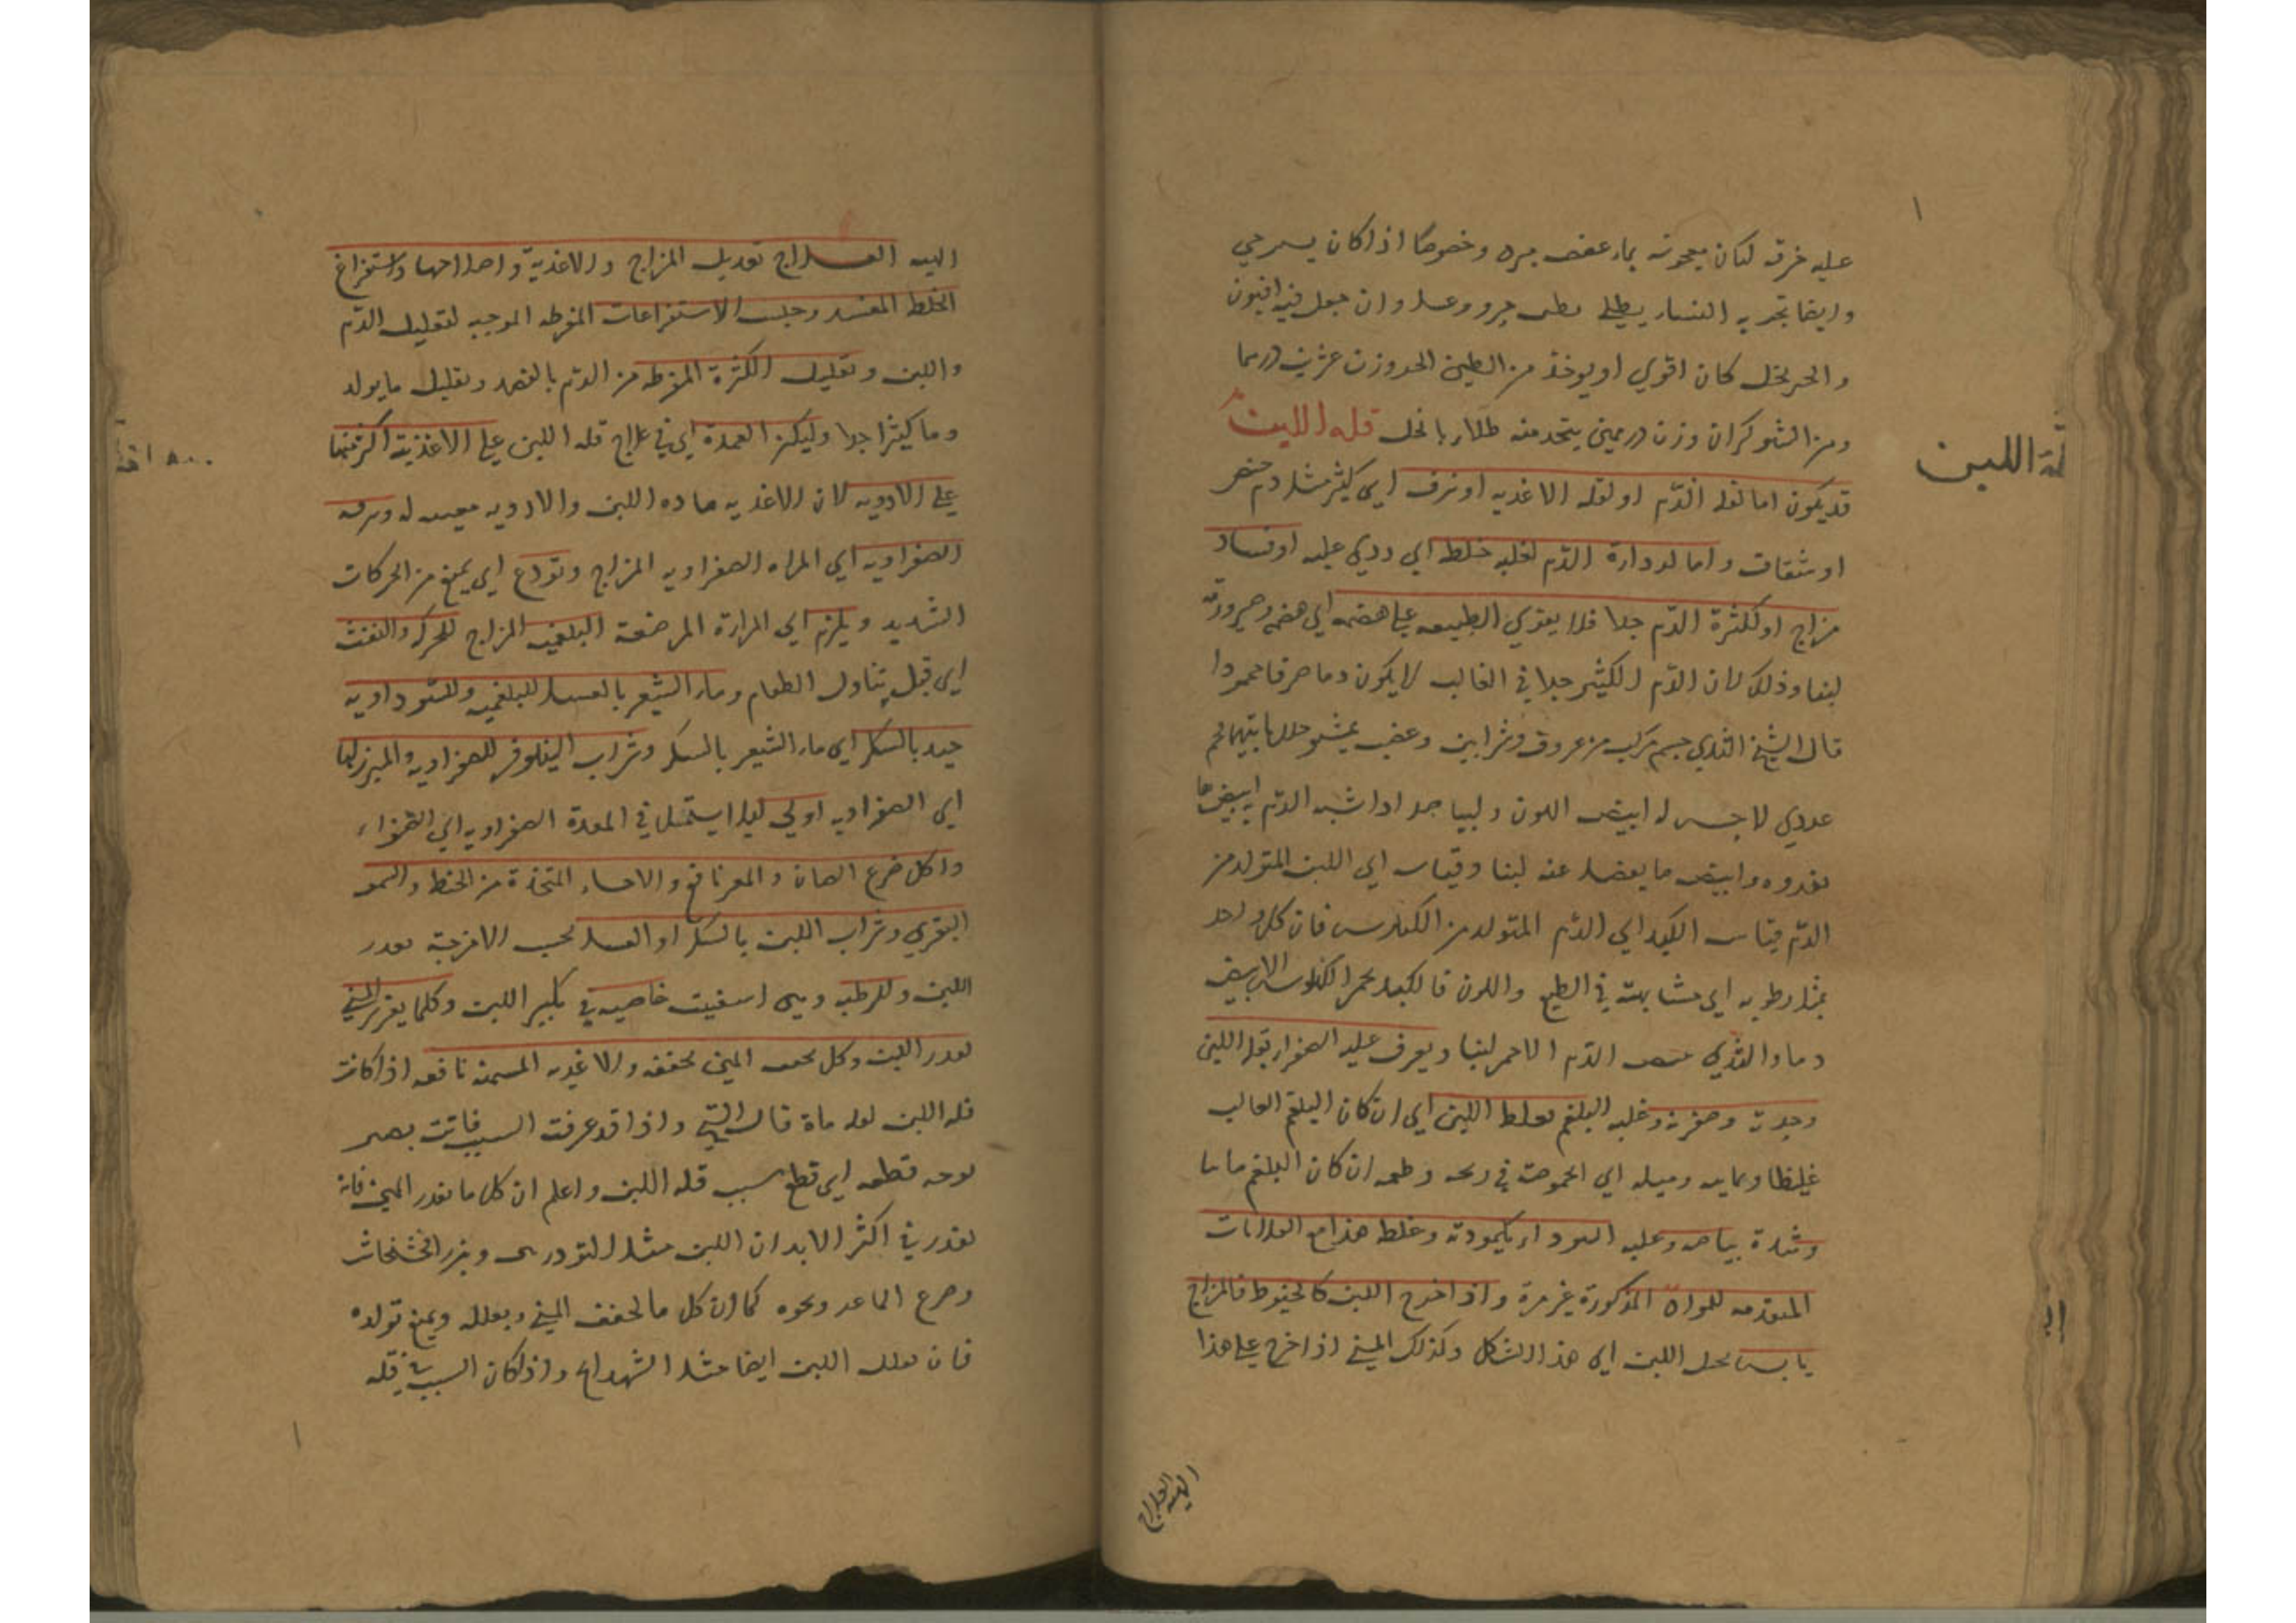 عليه خرقة كتان معجونة بماء عفص مبرد وخصوصًا اذا كان يسرخي
وايضا تجربه النساء يطلي بطين حر وعسل وان جعل فيه افيون
والحر بخل كان اقوي او يوخذ من الطين الحر وزن عشرين درهما
ومن الشوكران وزن درهمين يتخذ منه طلاء بالخل قلة اللبن
قلة اللبن
قد يكون اما لقلة الدم او لقلة الاغذيه او نزف اي كثير مثل دم حيض
او شقاق واما لرداءة الدم لغلبه خلط اي رديي عليه او فساد
مزاج او لكثرة الدم جدا فلا يقوي الطبيعه على هضمه اي هضمه وصيرورته
لبنا وذلك لان الدم الكثير جدا في الغالب لا يكون دما صرفا محمودا
قال الشيخ الثدي جسم مركب من عروق وشرايين وعصب يحشو خلل ما بينها لحم
غددي لا حس له ابيض اللون ولبياضه اذا تشبه الدم ابيض ما
يغدوه وابيض ما يفصل عنه لبنا وقياس اي اللبن المتولد من
الدم قياس الكبد اي الدم المتولد من الكيلوس فان كل واحد
يحيل رطوبه اي مشابهته في الطبع واللون فالكبد يحمر الكيلوس الابيض
دما والثدي يبيض الدم الاحمر لبنا ويعرف غلبه الصفراء بقلة اللبن
وحدته وصفرته وغلبه البلغم بغلظ اللبن اي ان كان البلغم الغالب
غليظا وبمايته وميله الي الحموضة في ريحه وطعمه ان كان البلغم مائيا
وشدة بياضه وغلبه السوداء بكمودته وغلظ هذا مع العلامات
المتقدمه للمواد المذكورة غير مرة واذا خرج اللبن كالخيوط فالمزاج
يابس يحيل اللبن الي هذا الشكل وكذلك المني اذا خرج على هذا
الهيئه العلاج
الهيئه العلاج تعديل المزاج والاغذية واصلاحها واستفراغ
الخلط المفسد وحبس الاستفراغات المفرطه الموجبه لتقليل الدم
واللبن وتقليل الكثرة المفرطه من الدم بالفصد وتقليل ما يولد
دما كثيرا جدا وليكن العمدة اي في علاج قلة اللبن على الاغذية اكثر منها
على الادويه لان الاغذيه مادة اللبن والادويه معينه له
الصفراويه اي المراه الصفراويه المزاج وتودع اي يمنع من الحركات
الشديد ويلزم اي المراة المرضعة البلغميه المزاج للحركه والتعب
اي قبل تناول الطعام وماء الشعير بالعسل للبلغميه وللسوداويه
جيد بالسكر اي ماء الشعير بالسكر وشراب النيلوفر للصفراويه والمبرز لها
اي الصفراويه اولي ليلا يستحيل في المعدة الصفراويه الي الصفراء
واكل ضرع الضان والمعز نافع والاحساء المتخذة من الحنطه والسمن
البقري وشراب اللبن بالسكر او العسل بحسب الامزجة يدر
اللبن وللرطبه خاصيه في تكثير اللبن وكلما يغزر المني
يغزر اللبن وكل مجفف المني يجففه والاغذيه المسمنه نافعه اذا كانت
قلة اللبن لقلة مادة قال الشيخ واذا قد عرفت السبب فانت بصير
بوجه قطعه اي قطع سبب قلة اللبن واعلم ان كل ما يغزر المني فانه
يغزر في اكثر الابدان اللبن مثل التودري وبزر الخشخاش
وضرع الماعز ونحوه كما ان كل ما يجفف المني ويقلله ويمنع تولده
فانه يقلل اللبن ايضا مثل الشهدانج واذا كان السبب في قله